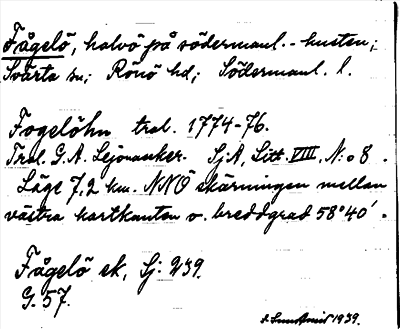 Fågelö, halvö på södermanl.-kusten;
Svärta sn; Rönö hd; Södermanl. l.
Fogelöhn tral. 1774-76.
Tral. G.A. Lejonanker. SjA, Litt. VIII, N:o 8.
Läge 7,2 km. NNÖ skärningen mellan
västra kartkanten o. breddgrad 58°40'.
Fågelö ek, Sj. 239.
G. 57.
1939.